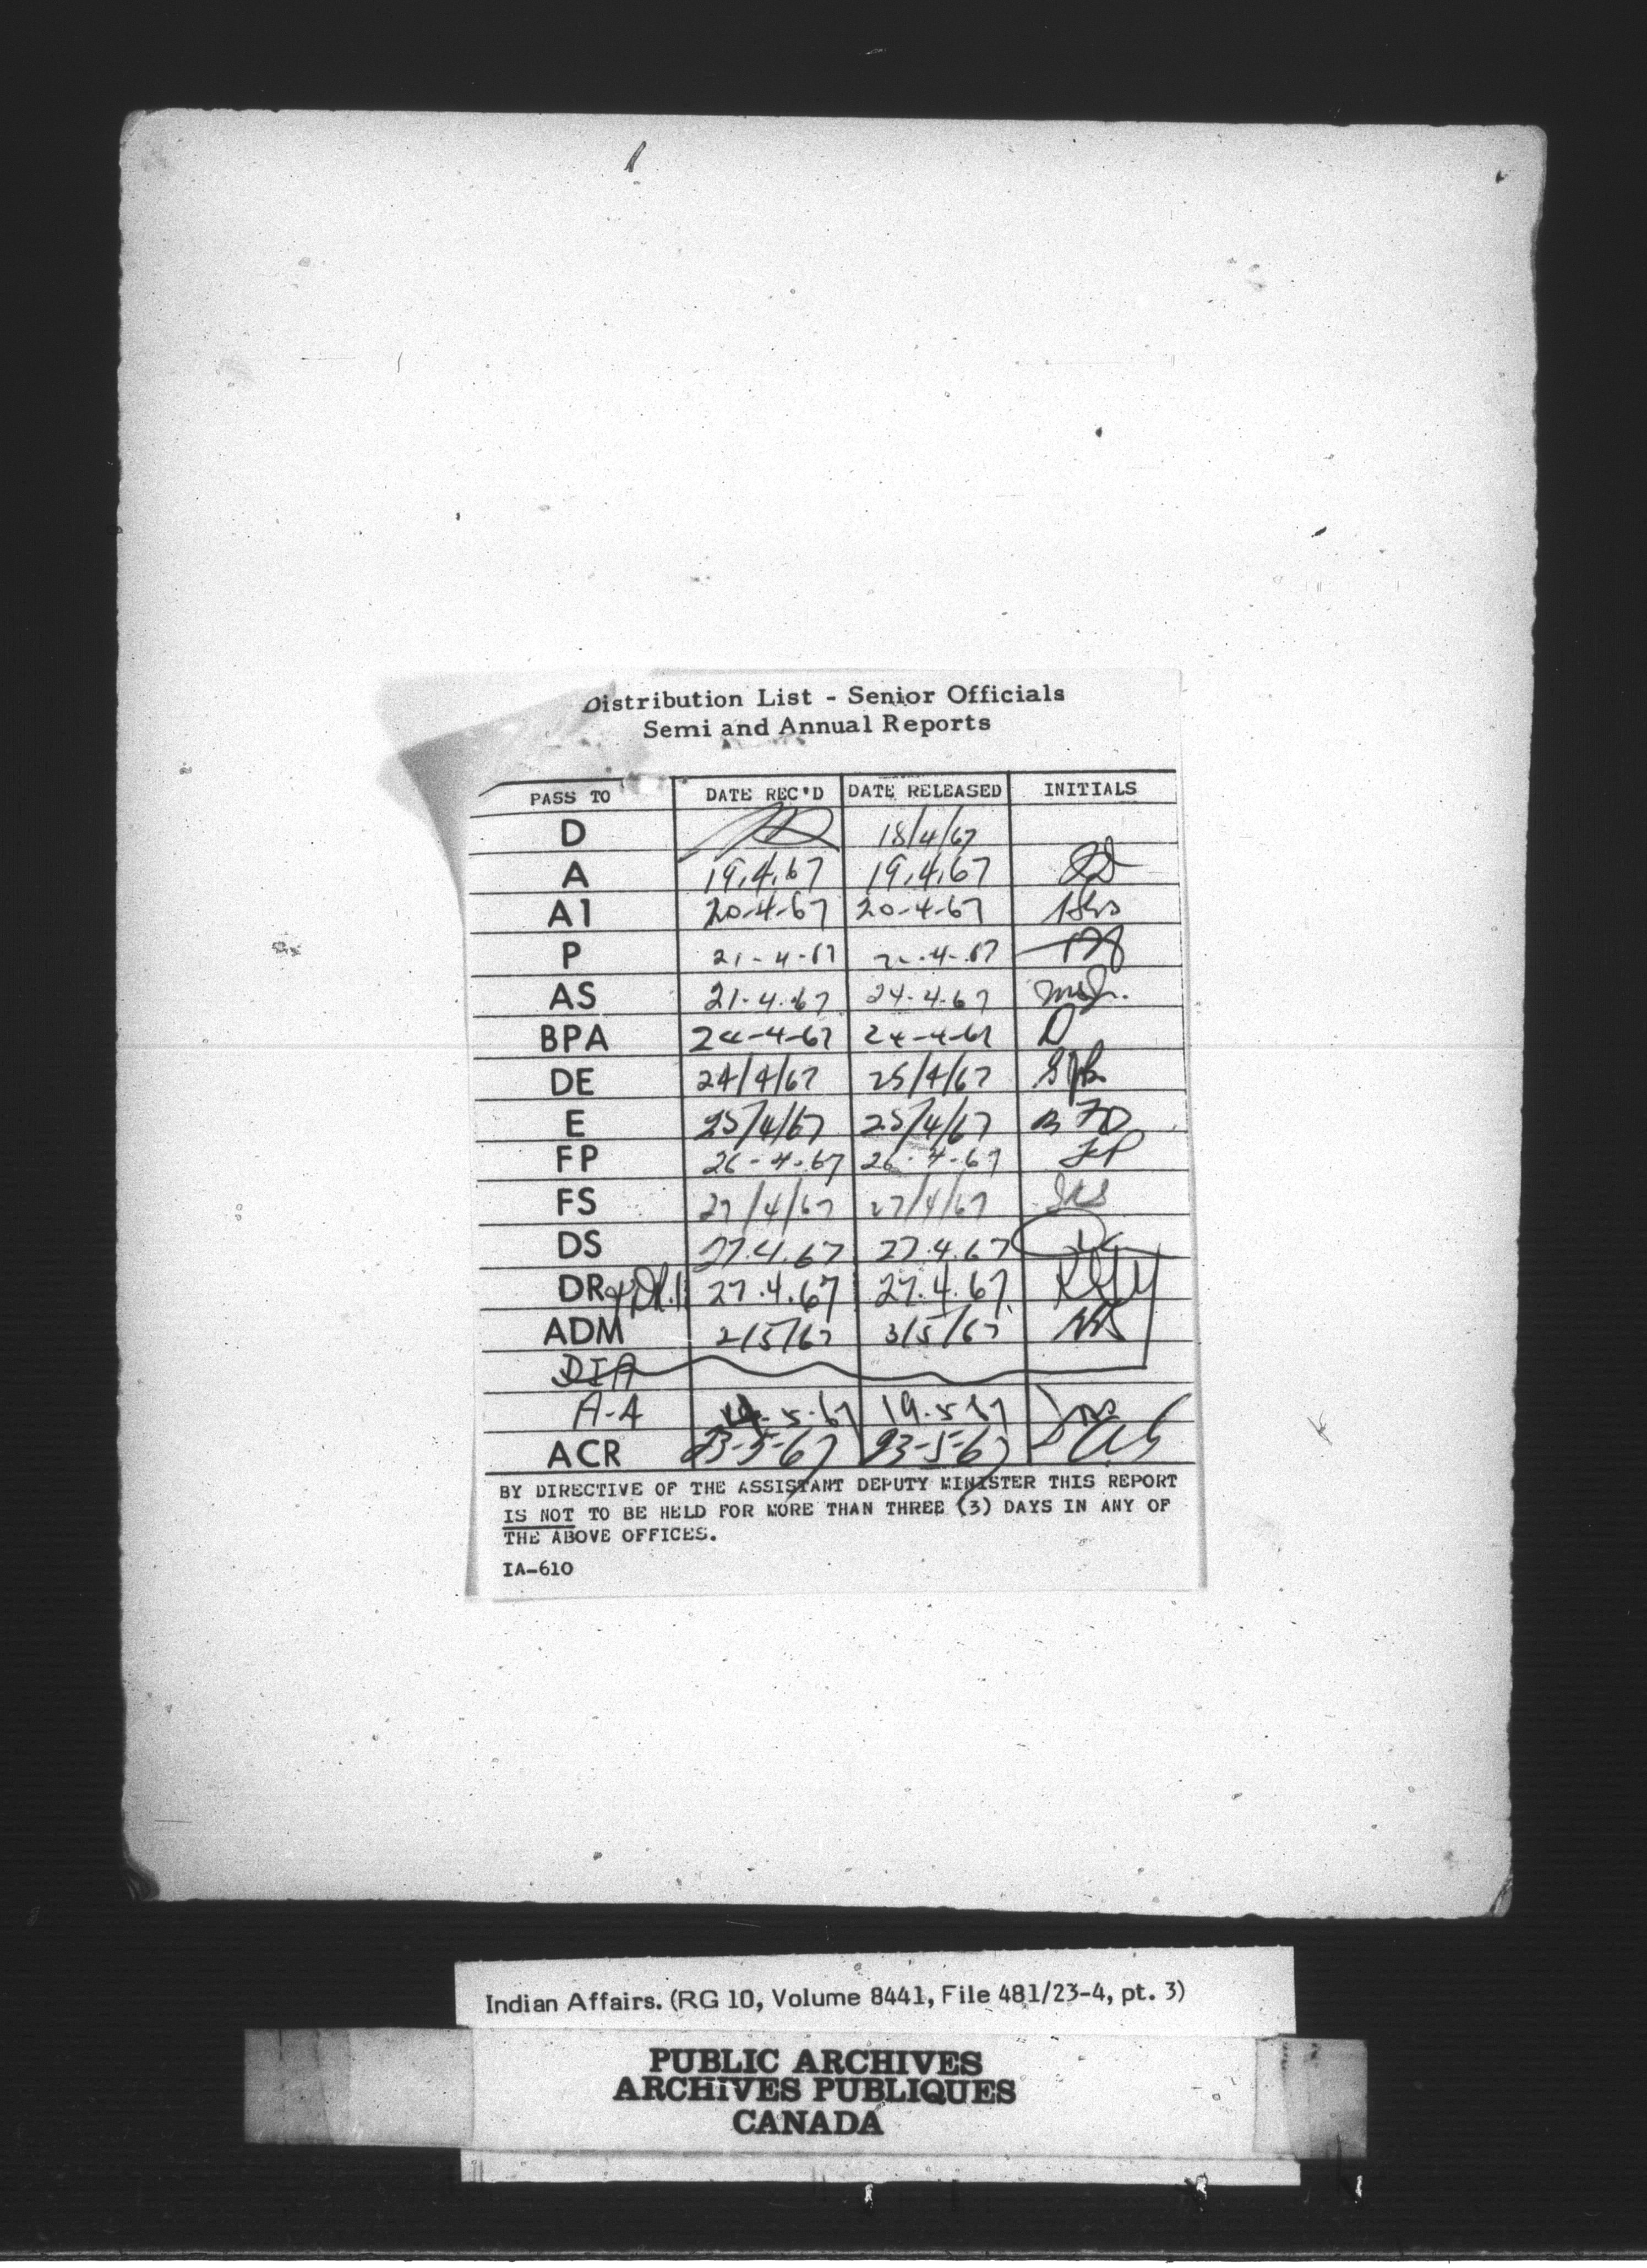 Distribution List - Senior Officials
Semi and Annual Reports
PASS TO DATE REC'D DATE RELEASED INITIALS
D 18/4/67
A 19.4.67 19.4.67
A1 20-4-67 20-4-67
P 21-4-67 -4-67
AS 21.4.67 24.4.67
BPA 24-4-67 24-4-67
DE 24/4/67 25/4/67
E 25/4/67 25/4/67
FP 26-4-67 26-4-67 FP
FS 27/4/67 27/4/67
DS 27.4.67 27.4.67
DR 27.4.67 27.4.67
ADM 2/5/67 3/5/67
DIA
A-A 19.5.67 19.5.67
ACR 23-5-67 23-5-67
BY DIRECTIVE OF THE ASSISTANT DEPUTY MINISTER THIS REPORT
IS NOT TO BE HELD FOR MORE THAN THREE (3) DAYS IN ANY OF
THE ABOVE OFFICES.
IA-610
Indian Affairs. (RG 10, Volume 8441, File 481/23-4, pt. 3)
PUBLIC ARCHIVES
ARCHIVES PUBLIQUES
CANADA